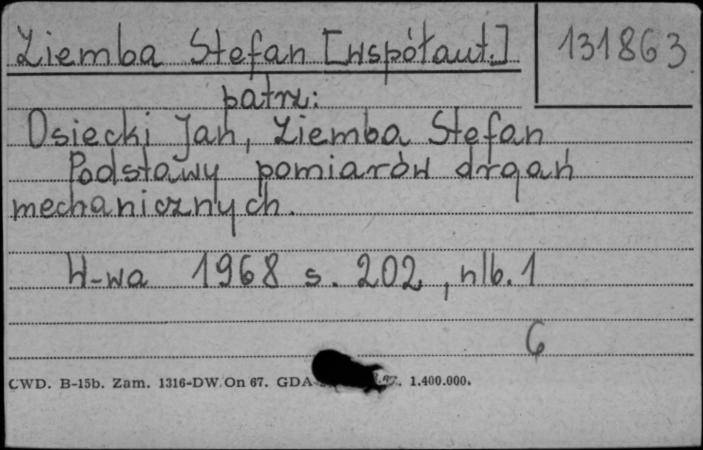 Ziemba Stefan [współaut.]
131863
patrz:
Osiecki Jan, Ziemba Stefan
Podstawy pomiarów drgań
mechanicznych.
W-wa 1968 s. 202, nlb. 1
6
CWD. B-15b. Zam. 1316-DW/On 67. GDA 1.400.000.